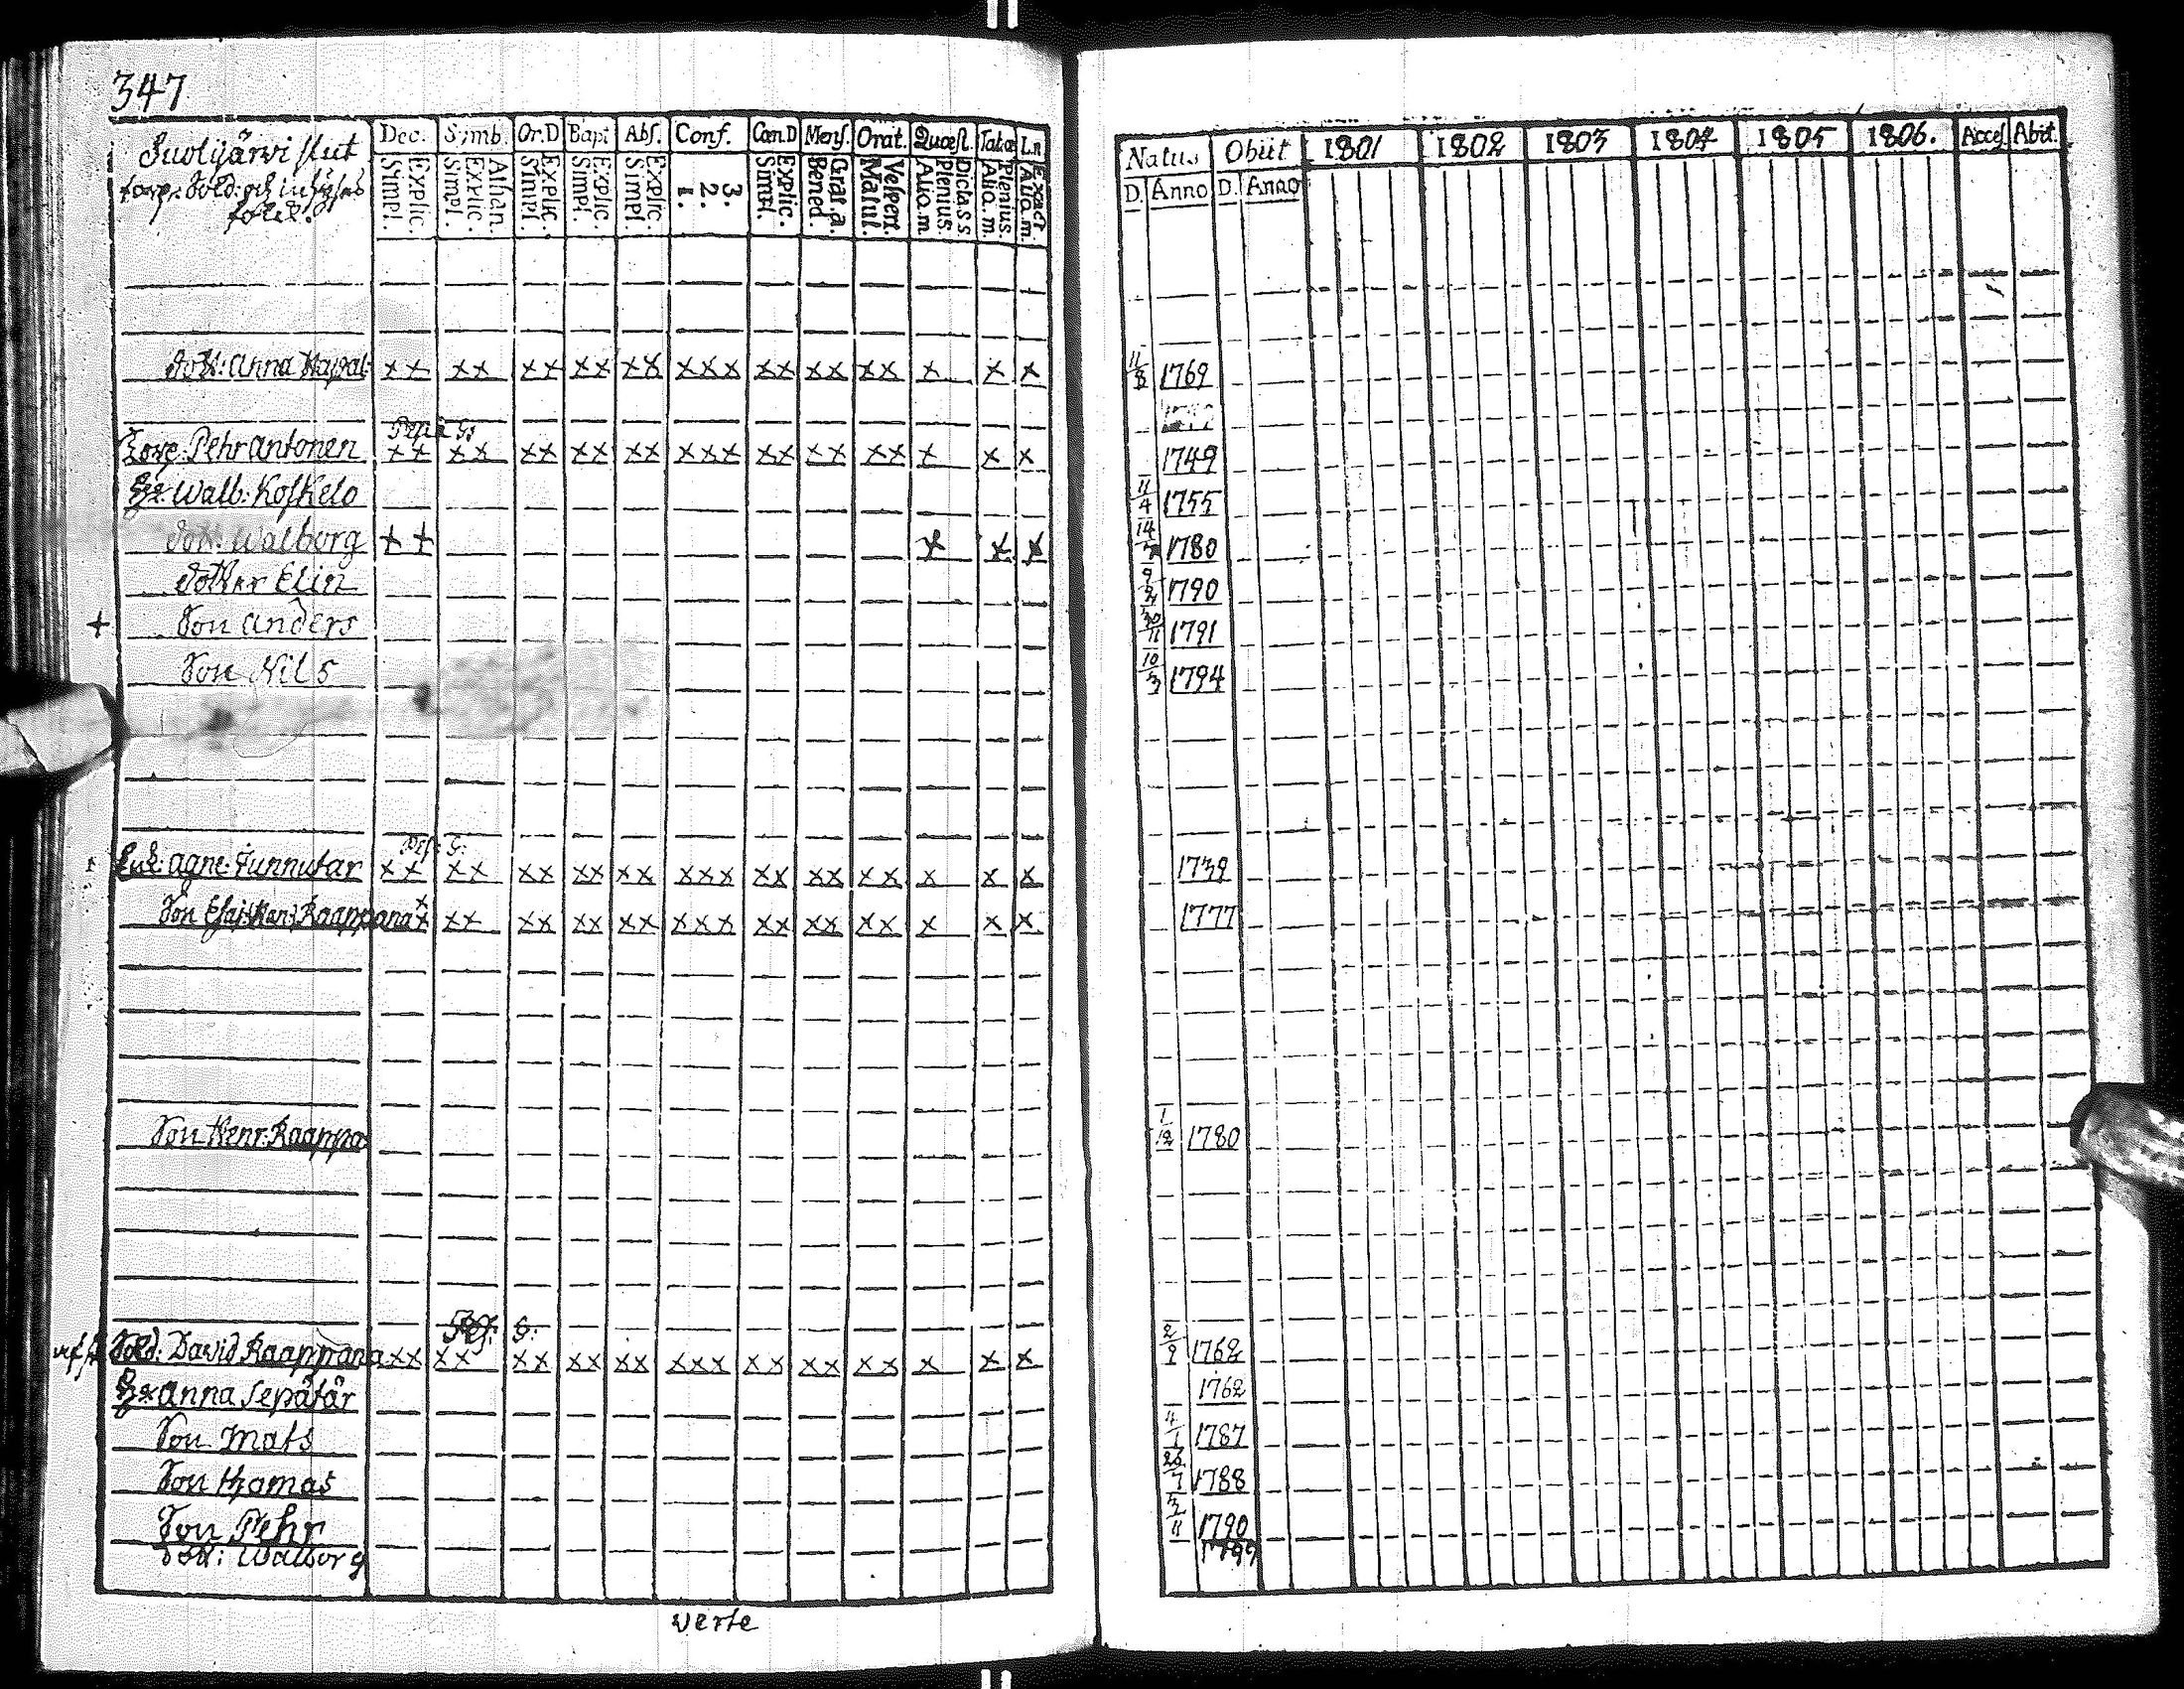 347
Suolijärvi slut
torp. Sold: och inhyses
folck.
Dec. Simb. Or.D Bapt Abs. Conf. Cæn.D Mens. Orat. Quæst. Tabæ L.n
Simpl. Explic. Simpl. Explic. Athan. Simpl. Explic. Simpl. Explic. Simpl. Explic. 1. 2. 3. Simpl. Explic. Bened. Grat.a. Matut. Vespert. Alio.m Plenius. Dicta s s Alio.m. Plenius. Alio.m. Exact
Natus Obiit 1801 1802 1803 1804 1805 1806. Acces. Abit.
D. Anno D. Anno
Dott: Anna Hapal: x x x x x x x x x x x x x x x x x x x x x x 11/3 1769
Torp: Pehr Antonen x x x x x x x x x x x x x x x x x x x x x x 1749
Hu Walb: Koskelo 11/4 1755
Dott: Walborg + + x x x 14/7 1780
Dotter Elin 9/4 1790
+ Son Anders 30/11 1791
Son Nils 10/3 1794
Enk: Agne: Junnutar x x x x x x x x x x x x x x x x x x x x x x 1739
Son Esai: Raappana x x x x x x x x x x x x x x x x x x x x x x 1777
Son Henr: Raappa 1/12 1780
Sold: David Raappana x x x x x x x x x x x x x x x x x x x x x x 2/9 1762
Hu Anna Sepätär 1762
Son Mats 4/1 1787
Son Thomas 1788
Son Pehr 1790
Dott: Walborg 1799
verte